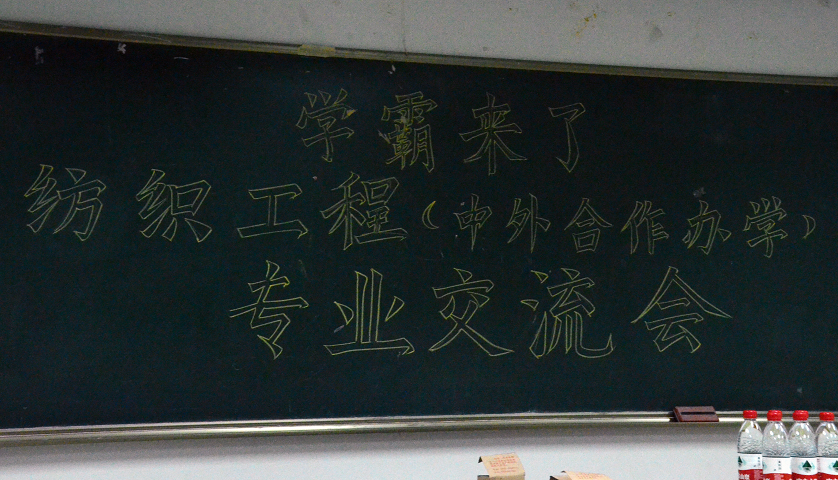 学霸来了
纺织工程(中外合作办学)
专业交流会